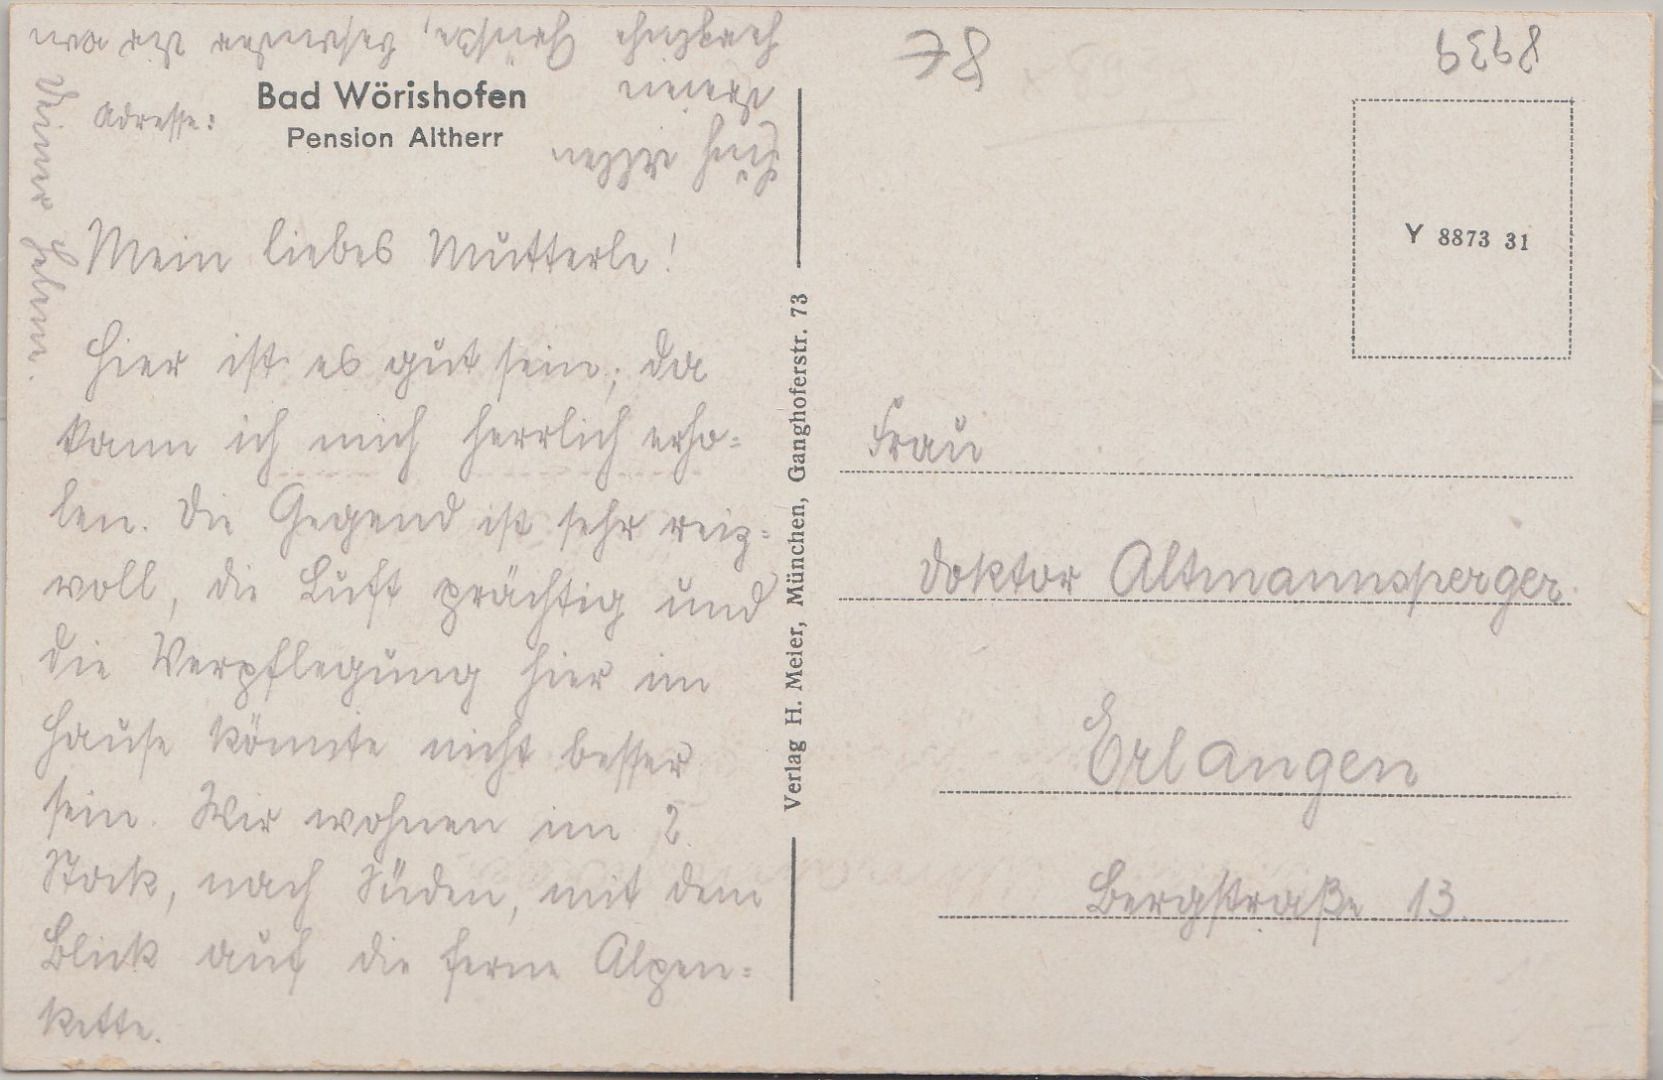 Bad Wörishofen
Adresse:
Pension Altherr
Mein liebes Mutterle!
Hier ist es gut sein; da
kann ich mich herrlich erho=
len. Die Gegend ist sehr reiz=
voll, die Luft prächtig und
die Verpflegung hier im
Hause könnte nicht besser
sein. Wir wohnen im 2.
Stock, nach Süden, mit dem
Blick auf die ferne Alpen=
kette.
Euch allen
meine
herzliche Grüße, besonders Dir von
Deiner Helene.
Verlag H. Meier, München, Ganghoferstr. 73
Y 8873 31
Frau
Doktor Altmannsperger
Erlangen
Bergstraße 13.